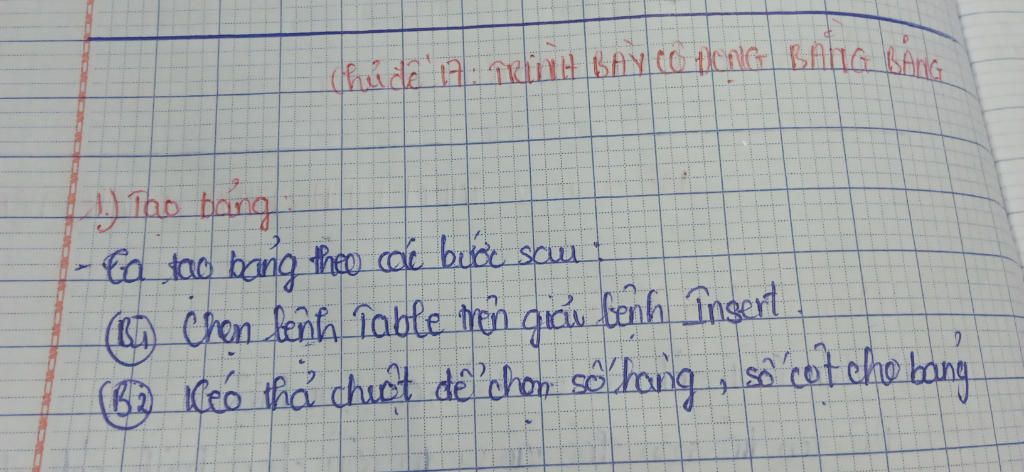 Chủ đề 17: TRÌNH BÀY CÔ ĐỌNG BẰNG BẢNG
1.) Tạo bảng:
- Ta tạo bảng theo các bước sau:
(B1) Chọn lệnh Table trên giải lệnh Insert.
(B2) Kéo thả chuột để chọn số hàng, số cột cho bảng